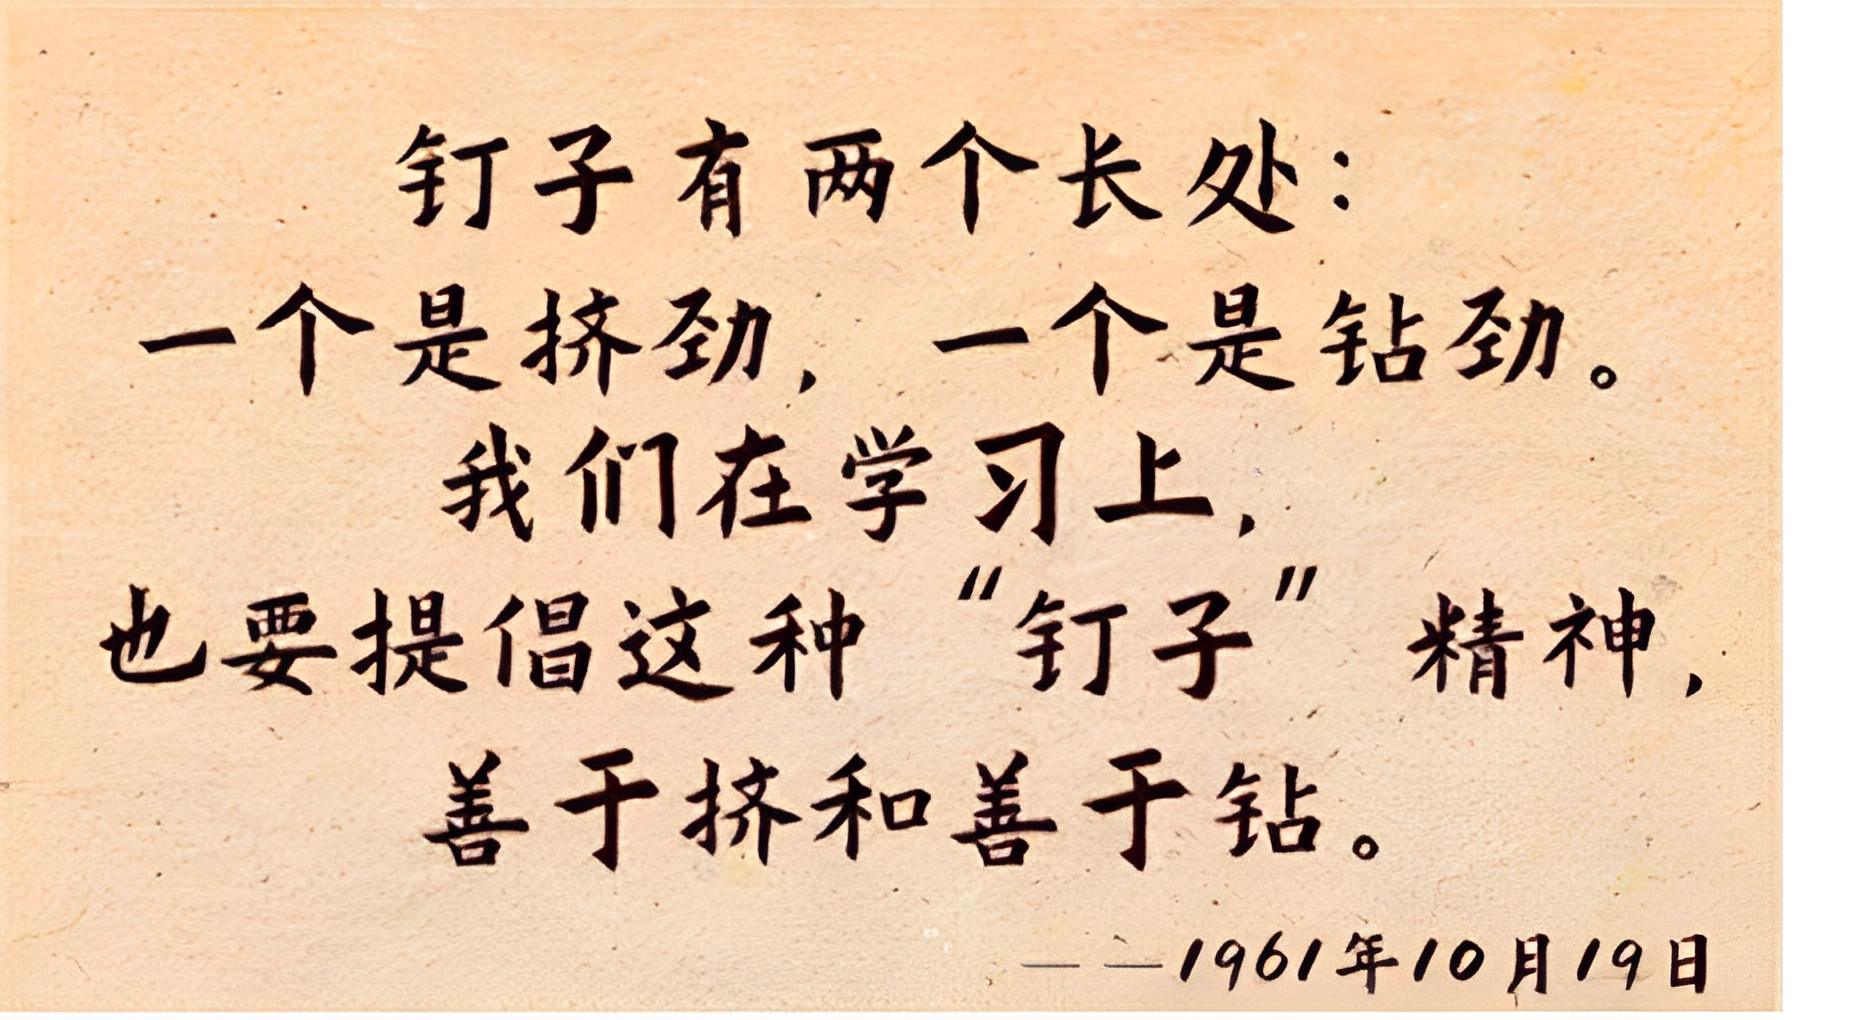 钉子有两个长处：
一个是挤劲，一个是钻劲。
我们在学习上，
也要提倡这种“钉子”精神，
善于挤和善于钻。
——1961年10月19日